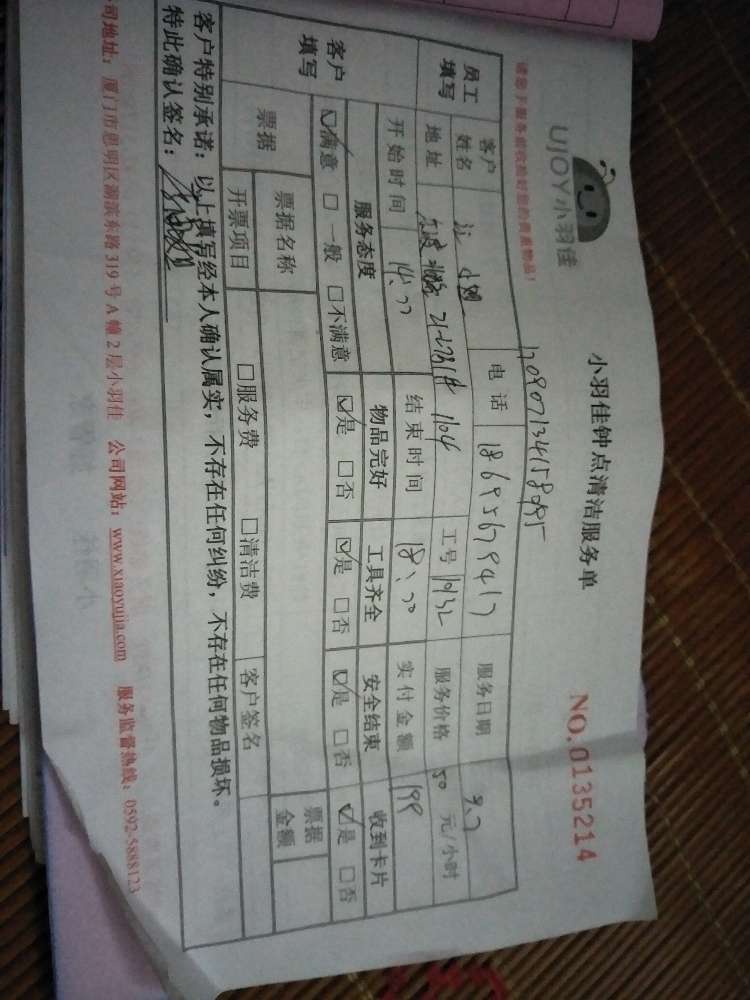 UJOY小羽佳
小羽佳钟点清洁服务单
NO.0135214
请您于服务前收捡好您的贵重物品！
员工填写 客户姓名 江 电话 18695679417 服务日期 9.7
地址 1104 工号 10132 服务价格 50 元/小时
开始时间 14:00 结束时间 18:00 实付金额 199
客户填写 服务态度 物品完好 工具齐全 安全结束 收到卡片
☑满意 □一般 □不满意 ☑是 □否 ☑是 □否 ☑是 □否 ☑是 □否
票据 票据名称 票据金额
开票项目 □服务费 □清洁费 客户签名
客户特别承诺：以上填写经本人确认属实，不存在任何纠纷，不存在任何物品损坏。
特此确认签名：
司地址：厦门市思明区湖滨东路319号A幢2层小羽佳 公司网站：www.xiaoyujia.com 服务监督热线：0592-5888123